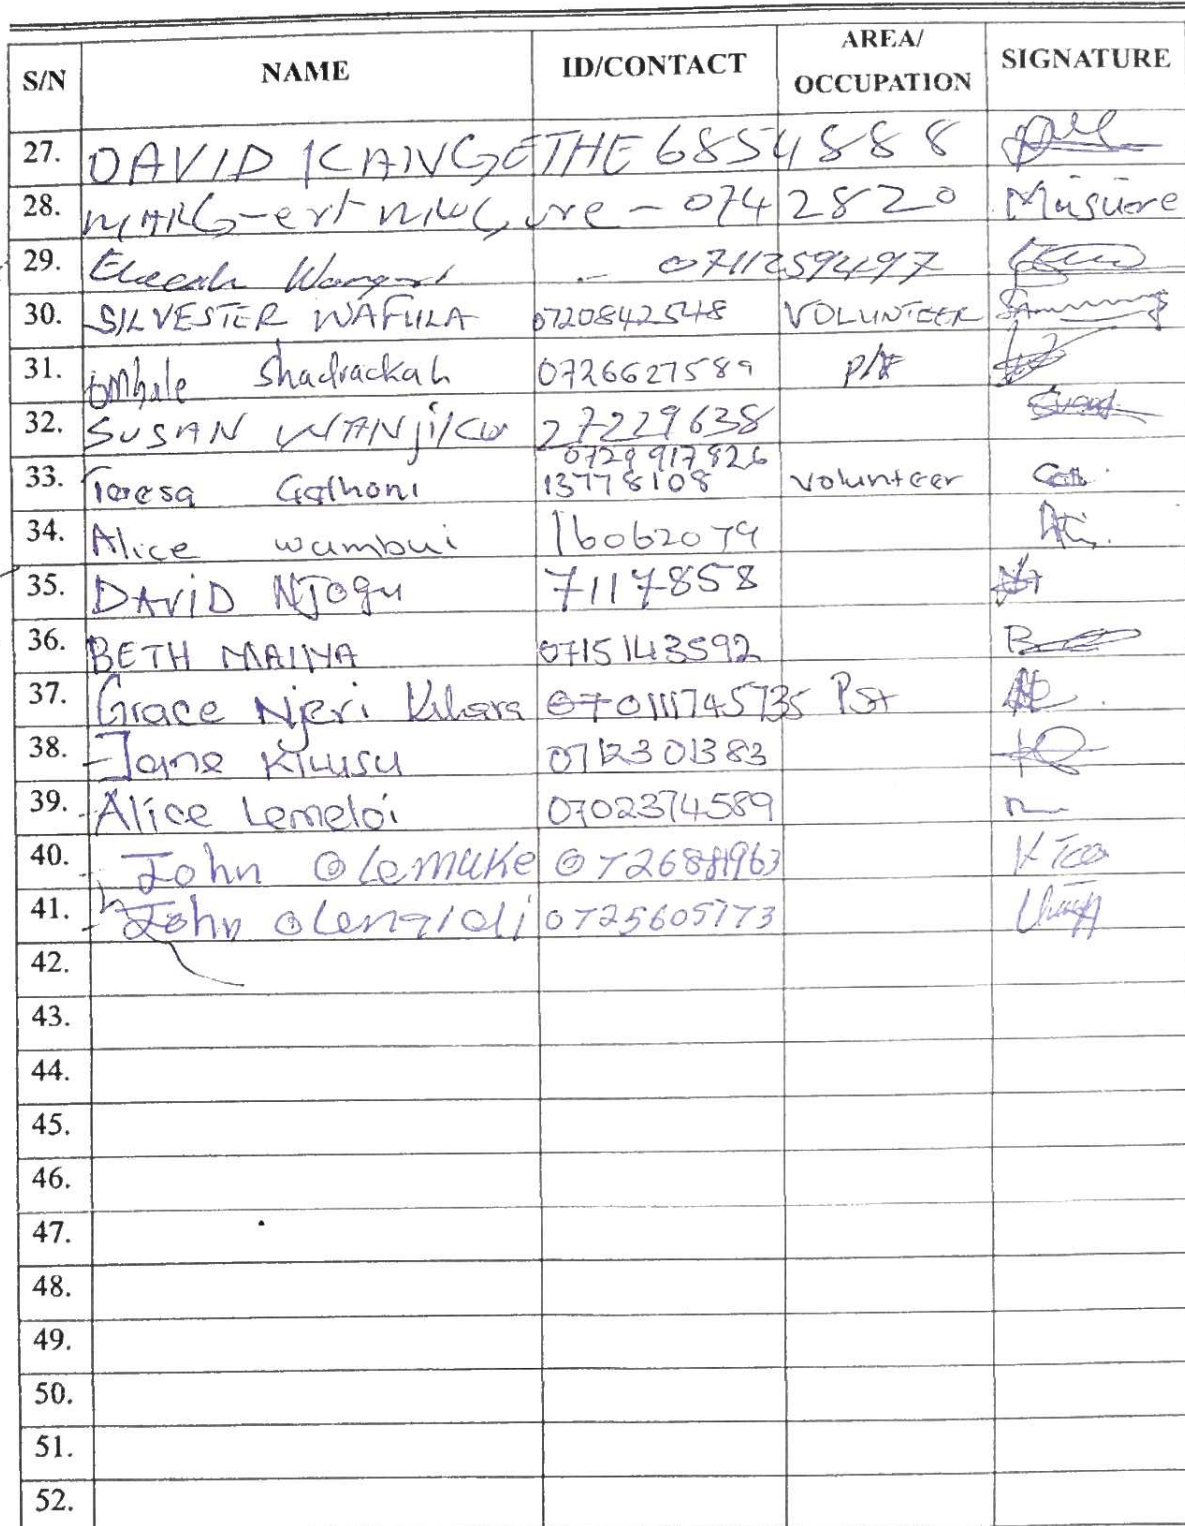 S/N NAME ID/CONTACT AREA/ OCCUPATION SIGNATURE
27. DAVID KANGETHE 6854888
28. - 0742820 Musuere
29. Wangari - 0711259497
30. SILVESTER WAFULA 0720842548 VOLUNTEER
31. Ombale Shadrackah 0726627589
32. SUSAN WANJIKU 27229638
0729917826
33. Teresa Gathoni 13778108 volunteer
34. Alice wambui 16062079
35. DAVID NJOGU 7117858
36. BETH MAINA 0715143592
37. Grace Njeri Kihara Pst
38. Jane Kiuusu 0712301383
39. Alice Lemeloi 0702374589
40. John Olemuke
41. John 0725605773
42.
43.
44.
45.
46.
47.
48.
49.
50.
51.
52.